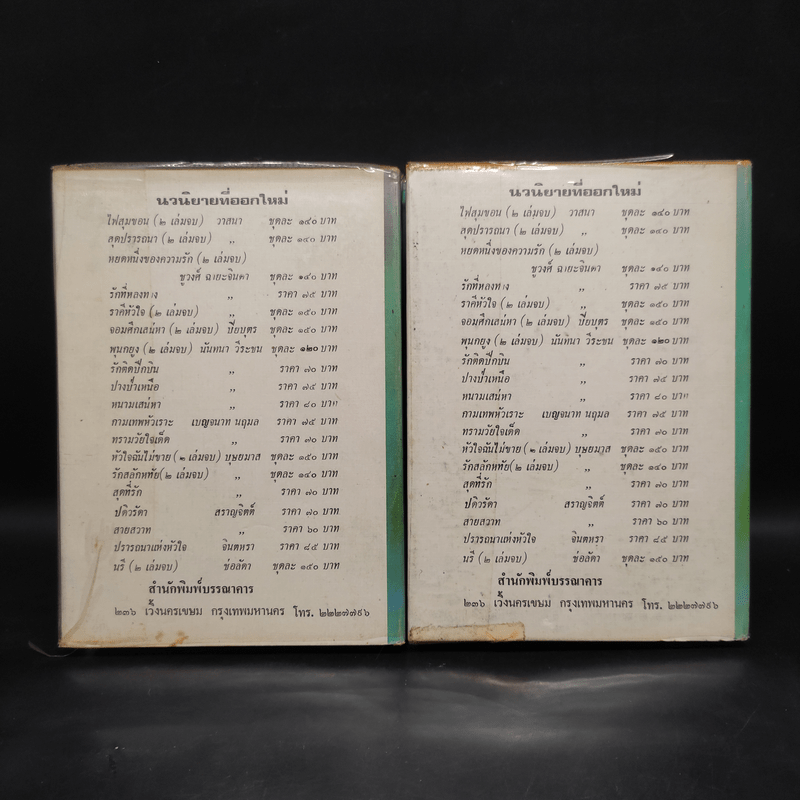 นวนิยายที่ออกใหม่
ไฟสุมขอน (๒ เล่มจบ) วาสนา ชุดละ ๑๔๐ บาท
สุดปรารถนา (๒ เล่มจบ) ,, ชุดละ ๑๔๐ บาท
หยดหนึ่งของความรัก (๒ เล่มจบ)
ชูวงศ์ ฉายะจินดา ชุดละ ๑๔๐ บาท
รักที่หลงทาง ,, ราคา ๗๕ บาท
ราคีหัวใจ (๒ เล่มจบ) ,, ชุดละ ๑๕๐ บาท
จอมศึกเสน่หา (๒ เล่มจบ) ปิยบุตร ชุดละ ๑๕๐ บาท
พุนกยูง (๒ เล่มจบ) นันทนา วีระชน ชุดละ ๑๒๐ บาท
รักติดปีกบิน ,, ราคา ๗๐ บาท
ปางป่าเหนือ ,, ราคา ๗๕ บาท
หนามเสน่หา ,, ราคา ๘๐ บาท
กามเทพหัวเราะ เบญจนาท นฤมล ราคา ๗๕ บาท
ทรามวัยใจเด็ด ,, ราคา ๗๐ บาท
หัวใจฉันไม่ขาย (๒ เล่มจบ) บุษยมาส ชุดละ ๑๕๐ บาท
รักสลักหทัย (๒ เล่มจบ) ,, ชุดละ ๑๔๐ บาท
สุดที่รัก ,, ราคา ๗๐ บาท
ปติวรัดา สราญจิตต์ ราคา ๗๐ บาท
สายสวาท ,, ราคา ๖๐ บาท
ปรารถนาแห่งหัวใจ จินตหรา ราคา ๘๕ บาท
นรี (๒ เล่มจบ) ช่อลัดา ชุดละ ๑๕๐ บาท
สำนักพิมพ์บรรณาคาร
๒๓๖ เวิ้งนครเขษม กรุงเทพมหานคร โทร. ๒๒๒๗๗๙๖
นวนิยายที่ออกใหม่
ไฟสุมขอน (๒ เล่มจบ) วาสนา ชุดละ ๑๔๐ บาท
สุดปรารถนา (๒ เล่มจบ) ,, ชุดละ ๑๔๐ บาท
หยดหนึ่งของความรัก (๒ เล่มจบ)
ชูวงศ์ ฉายะจินดา ชุดละ ๑๔๐ บาท
รักที่หลงทาง ,, ราคา ๗๕ บาท
ราคีหัวใจ (๒ เล่มจบ) ,, ชุดละ ๑๕๐ บาท
จอมศึกเสน่หา (๒ เล่มจบ) ปิยบุตร ชุดละ ๑๕๐ บาท
พุนกยูง (๒ เล่มจบ) นันทนา วีระชน ชุดละ ๑๒๐ บาท
รักติดปีกบิน ,, ราคา ๗๐ บาท
ปางป่าเหนือ ,, ราคา ๗๕ บาท
หนามเสน่หา ,, ราคา ๘๐ บาท
กามเทพหัวเราะ เบญจนาท นฤมล ราคา ๗๕ บาท
ทรามวัยใจเด็ด ,, ราคา ๗๐ บาท
หัวใจฉันไม่ขาย (๒ เล่มจบ) บุษยมาส ชุดละ ๑๕๐ บาท
รักสลักหทัย (๒ เล่มจบ) ,, ชุดละ ๑๔๐ บาท
สุดที่รัก ,, ราคา ๗๐ บาท
ปติวรัดา สราญจิตต์ ราคา ๗๐ บาท
สายสวาท ,, ราคา ๖๐ บาท
ปรารถนาแห่งหัวใจ จินตหรา ราคา ๘๕ บาท
นรี (๒ เล่มจบ) ช่อลัดา ชุดละ ๑๕๐ บาท
สำนักพิมพ์บรรณาคาร
๒๓๖ เวิ้งนครเขษม กรุงเทพมหานคร โทร. ๒๒๒๗๗๙๖